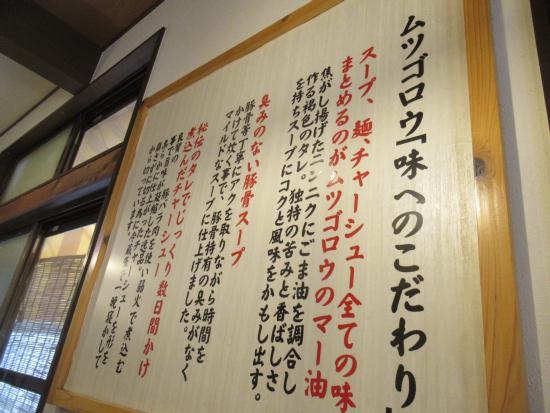 ムツゴロウ「味へのこだわり
スープ、麺、チャーシュー全ての味
まとめるのがムツゴロウのマー油
焦がし揚げたニンニクにごま油を調合し
作る褐色のタレ。独特の苦みと香ばしさ
を持ちスープにコクと風味をかもし出す。
臭みのない豚骨スープ
豚骨等丁寧にアクを取りながら時間を
かけて炊く事で、豚骨特有の臭みがなく
マイルドなスープに仕上げました。
秘伝のタレでじっくり数日間かけ
煮込んだチャーシュー
弱火で煮込む